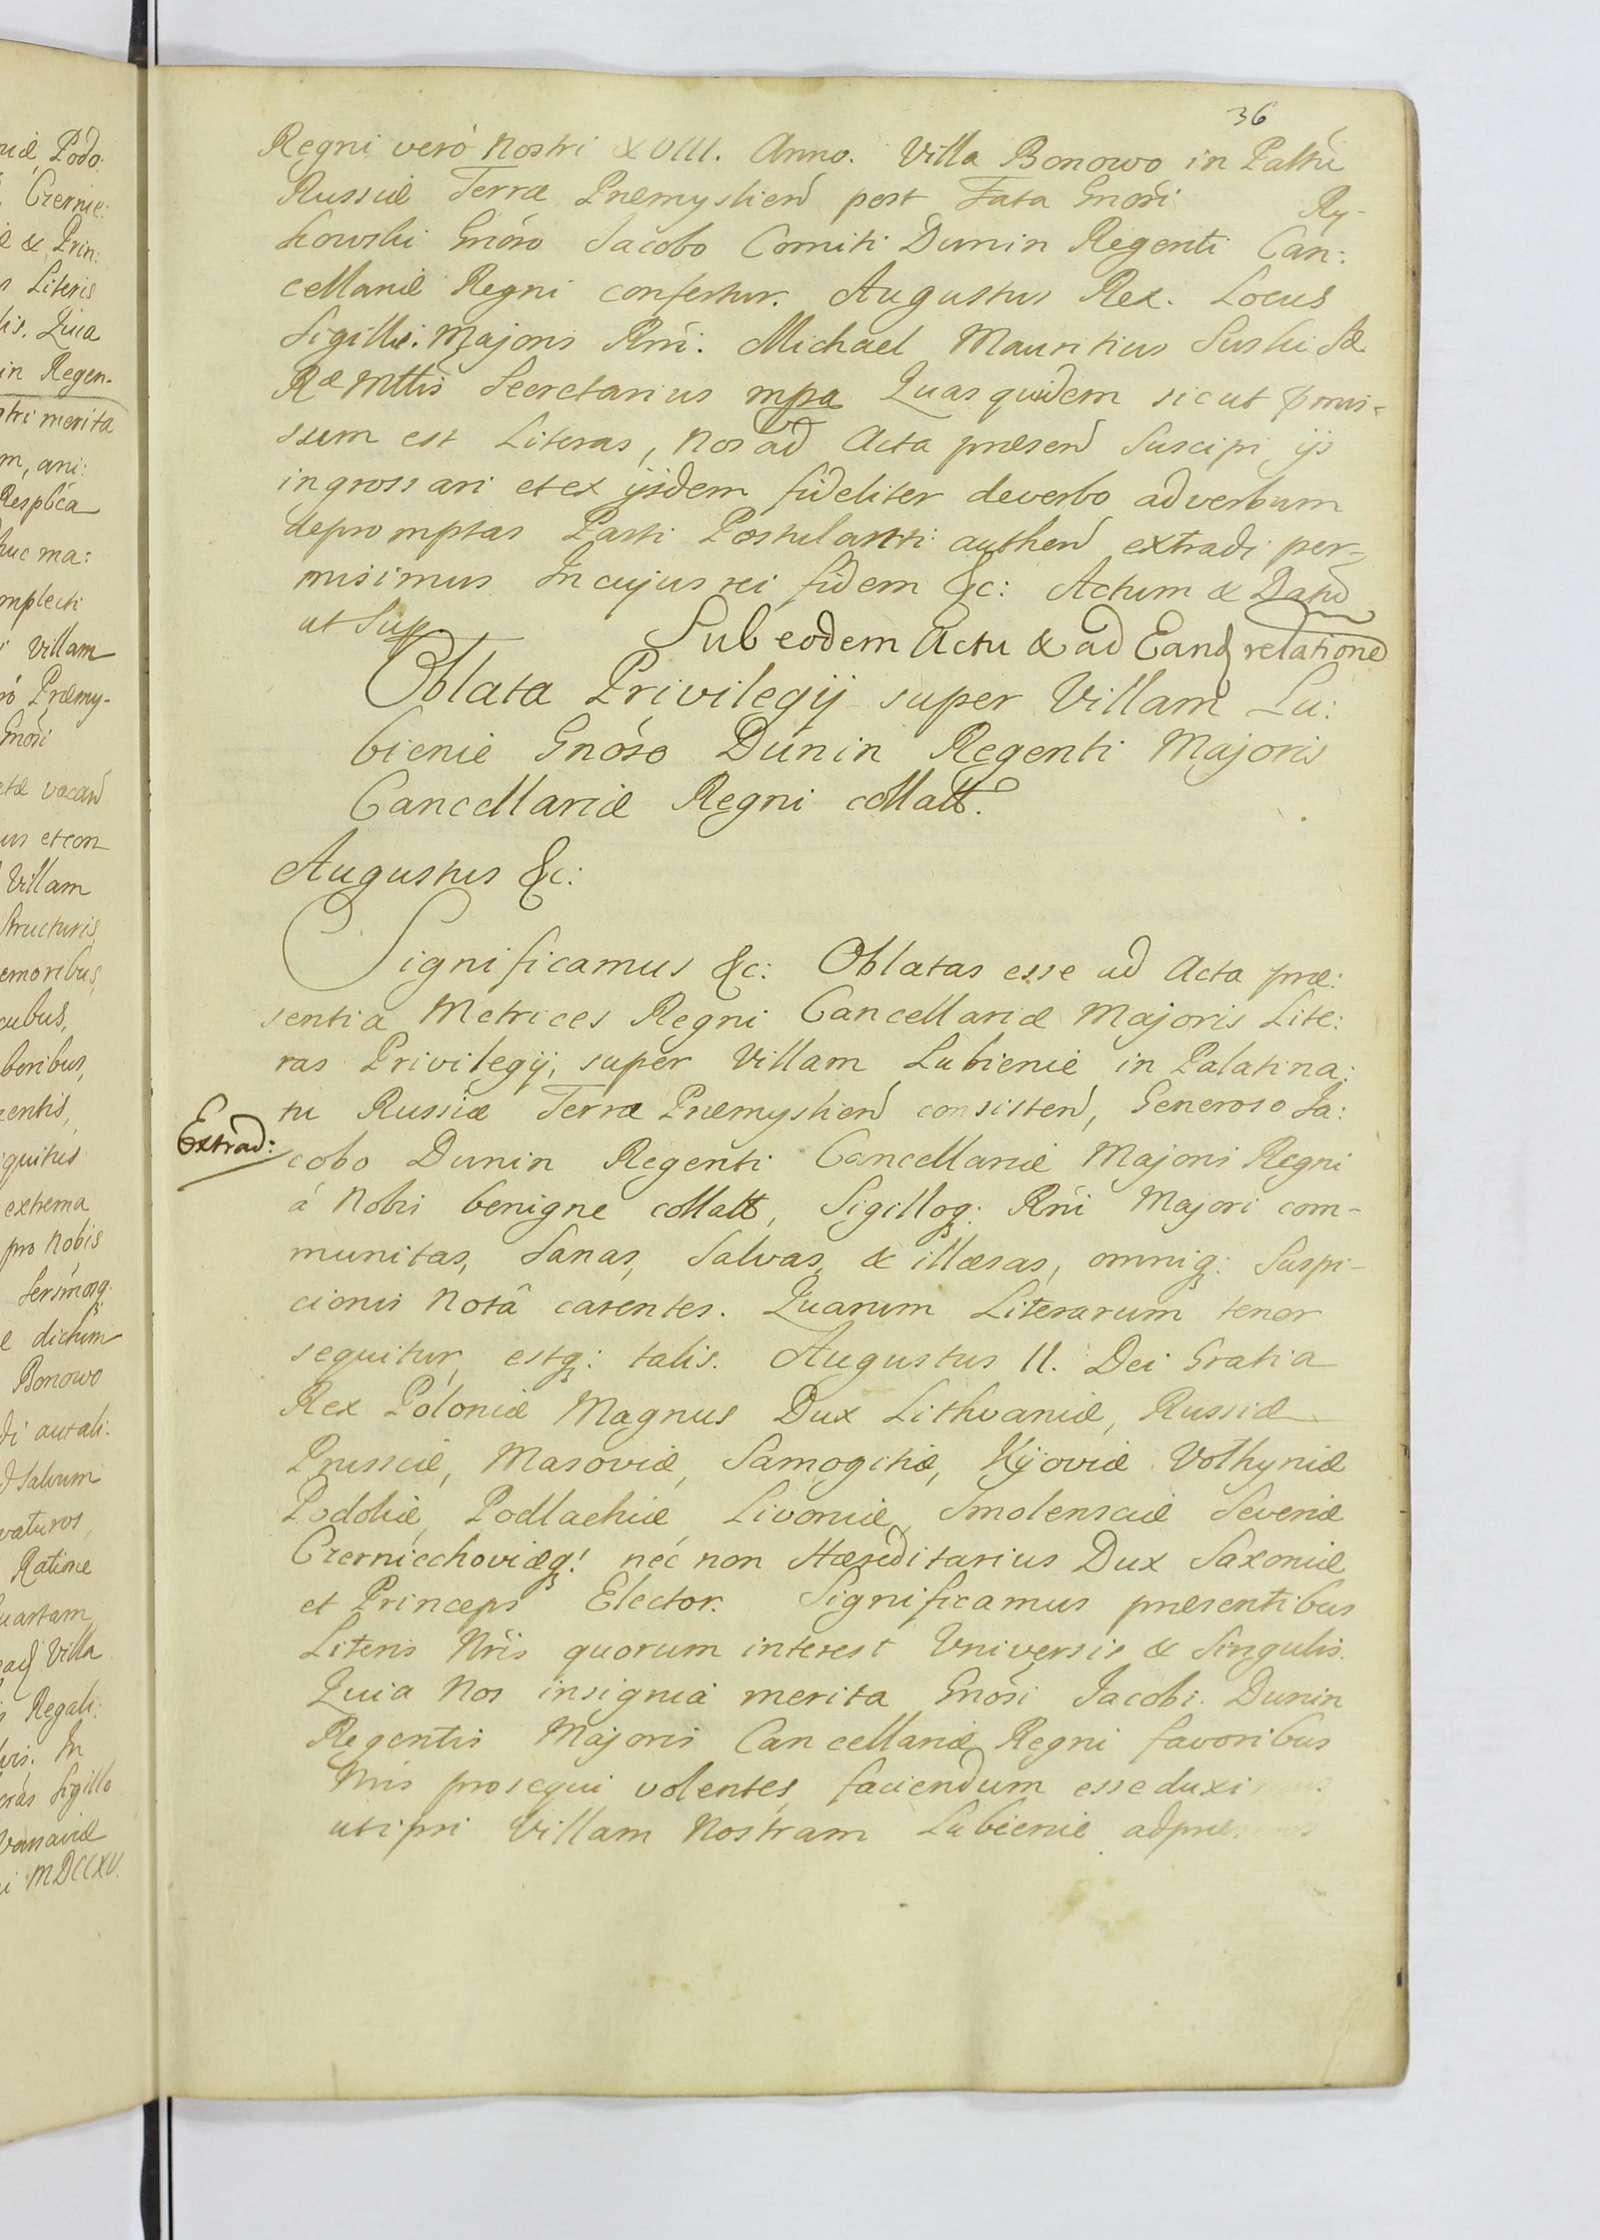 36
Regni verò Nostri XVIII. Anno. Villa Bonowo in Palttũ
Russiæ Terræ Præmysliens post Fata Gnosi Ry-
kowski Gnoso Jacobo Comiti Dunin Regenti Can:
cellariæ Regni confertur. Augustus Rex. Locus
Sigilli: Majoris Rni: Michael Mauritius Suski Sæ
Ræ Mttis Secretarius mpa Quas quidem sicut pmis-
sum est Literas, Nos ad Acta præsen Suscipi ijs
ingrossari et ex ijsdem fideliter de verbo ad verbum
depromptas Parti Postulanti authen extradi per-
misimus In cujus rei fidem &c: Actum & Datũ
ut Sup.
Sub eodem Actu & ad Eand relatione
Oblata Privilegij super Villam Lu:
bienie Gnóso Dunin Regenti Majoris
Cancellariæ Regni collatt.
Augustus &c:
Significamus &c: Oblatas esse ad Acta præ:
sentia Metrices Regni Cancellariæ Majoris Lite:
ras Privilegij, super Villam Lubienie in Palatina:
tu Russiæ Terræ Præmyslien consisten, Generoso Ja:
Extrad:
cobo Dunin Regenti Cancellariæ Majoris Regni
á Nobis benigne collatt, Sigilloq: Rni Majori com-
munitas, Sanas, Salvas, & illæsas, omniq: Suspi-
cionis Notâ carentes. Quarum Literarum tenor
sequitur, estq: talis. Augustus II. Dei Gratia
Rex Poloniæ Magnus Dux Lithvaniæ, Russiæ
Prussiæ, Masoviæ, Samogitiæ, Kijoviæ Volhyniæ
Podoliæ, Podlachiæ, Livoniæ, Smolensciæ Severiæ
Czerniechoviæq! néc non Hæreditarius Dux Saxoniæ
et Princeps Elector. Significamus præsentibus
Literis Nris quorum interest Universis & Singulis.
Quia Nos insignia merita Gnosi Jacobi Dunin
Regentis Majoris Cancellariæ Regni favoribus
Nris prosequi volentes, faciendum esse duximus
uti ipsi Villam Nostram Lubienie ad